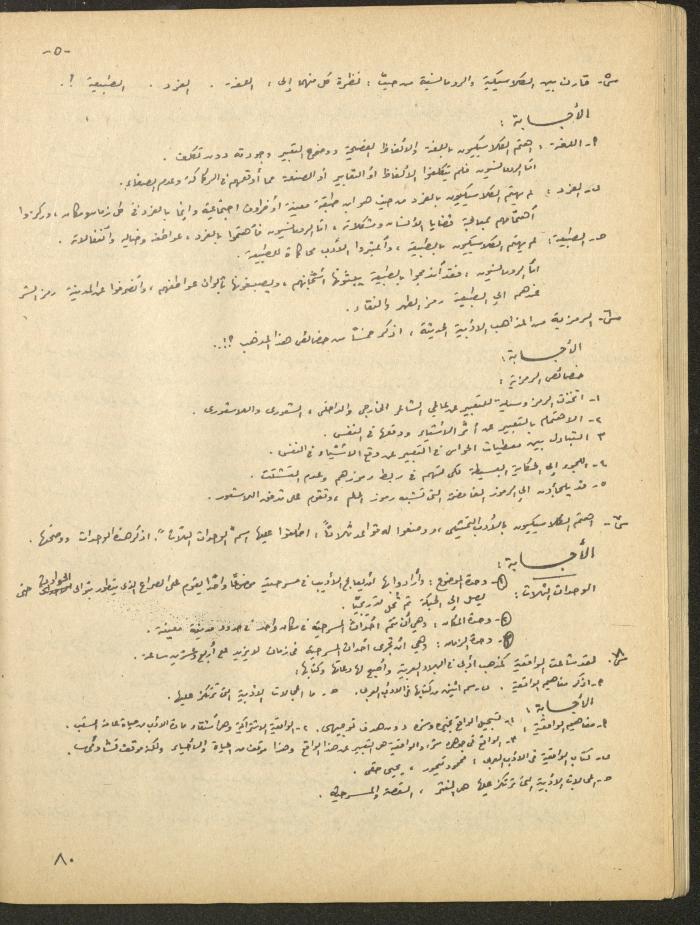 -٥-
س٥- قارن بين الكلاسيكية والرومانسية من حيث : نظرة كل منهما إلى : اللغة . الفرد . الطبيعة ؟.
الأجابة :
٢- اللغة : اهتم الكلاسيكيون باللغة والألفاظ الفصيحة ووضوح التعبير وجودته دون تكلف .
أما الرومانسيون فلم يتكلفوا الألفاظ أو التعابير أو الصنعة مما أوقعهم في الركاكة وعدم الصفاء .
ب- الفرد : لم يهتم الكلاسيكيون بالفرد من حيث هو ابن طبقة معينة أو ظروف اجتماعية وإنما بالفرد في كل زمان ومكان ، وركزوا
اهتمامهم بمعالجة قضايا الأنسان ومشكلاته ، أما الرومانسيون فأهتموا بالفرد ، عواطفه وخياله وأنفعالاته .
ج- الطبيعة : لم يهتم الكلاسيكيون بالطبيعة ، وأعتبروا الأدب محاكاة للطبيعة .
أما الرومانسيون ، فقد أندمجوا بالطبيعة يبثونها أشجانهم ، ويصبغونها بألوان عواطفهم ، وأنصرفوا عن المدينة رمز الشر
عندهم إلى الطبيعة رمز الطهر والنقاء .
س٦- الرمزية من المذاهب الأدبية الحديثة ، اذكر خمساً من خصائص هذا المذهب ؟!..
الأجابة :
خصائص الرمزية :
١- اتخذت الرمز وسيلة للتعبير عن عالمي الشاعر الخارجي والداخلي ، الشعوري واللاشعوري .
٢- الاهتمام بالتعبير عن أثر الأشياء ووقعها في النفس .
٣- التبادل بين معطيات الحواس في التعبير عن وقع الأشياء في النفس .
٤- اللجوء إلى الحكاية البسيطة في ربط رموزهم وعدم التشتت .
٥- قد يلجأون إلى الرموز الغامضة التي تشبه رموز الحلم ، وتقوم على تدفق اللاشعور .
س٧- اهتم الكلاسيكيون بالأدب التمثيلي ، ووضعوا له قواعد ثلاثاً ، اطلقوا عليها اسم "الوحدات الثلاث" . اذكر هذه الوحدات ووضحها .
الأجابة :
الوحدات الثلاث : ① وحدة الموضوع : وأرادوا بها أن يعالج الأديب في مسرحيته موضوعاً واحداً يقوم على الصراع الذي يتطور بتوالي الحوادث حتى
يصل إلى الحبكة ثم تحل تدريجياً .
② وحدة المكان : وهي أن تتم أحداث المسرحية في مكان واحد في حدود مدينة معينة .
③ وحدة الزمان : وهي أن تجري أحداث المسرحية في زمان لا يزيد على أربع وعشرين ساعة .
س٨- لقد شاعت الواقعية كمذهب أدبي في البلاد العربية وأصبح لها دعاتها وكتابها :
٢- اذكر مفاهيم الواقعية . ب- سم اثنين من كتابها في الأدب العربي . ج- ما المجالات الأدبية التي ترتكز عليها .
الأجابة :
٢- مفاهيم الواقعية : ١- تسجيل الواقع بخيره وشره دون هدف توجيهي . ٢- الواقعية الاشتراكية وهي أستقاء مادة الأدب من حياة عامة الشعب .
٣- الواقع في جوهره شر ، والواقعية هي التعبير عن هذا الواقع وهذا موقف من الحياة والأحياء ولكنه موقف متشائم .
ب- كتاب الواقعية في الأدب العربي : محمود تيمور ، يحيى حقي .
ج- المجالات الأدبية التي ترتكز عليها هي النثر ، القصة والمسرحية .
٨٠